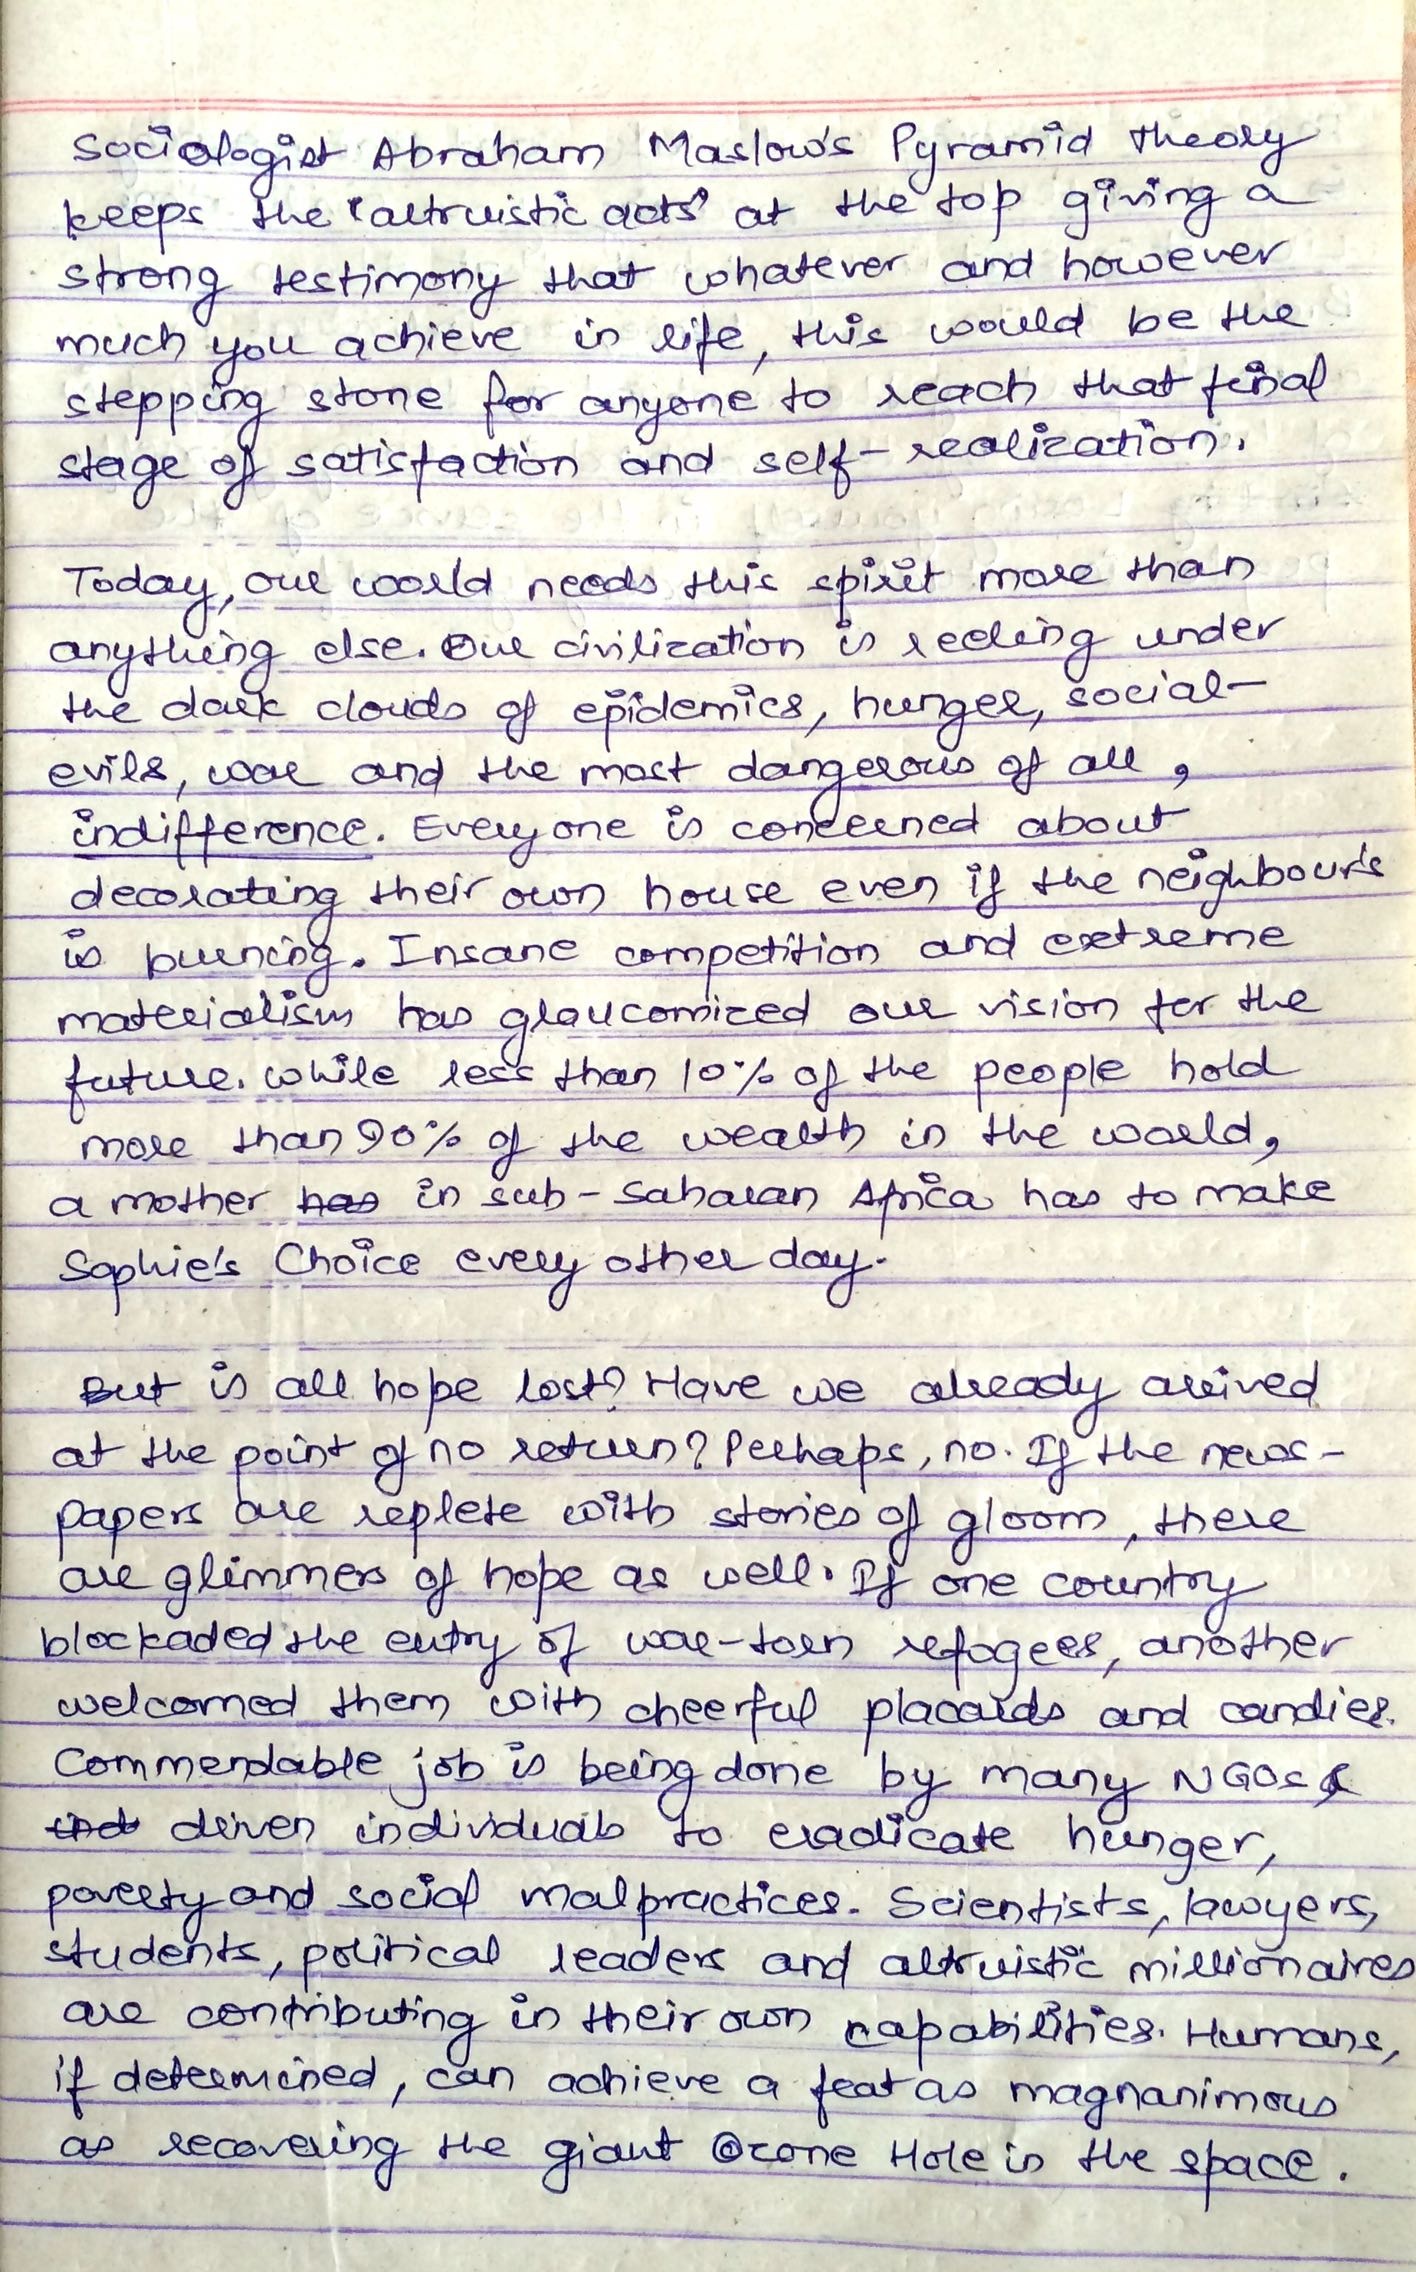 Sociologist Abraham Maslow's Pyramid theory
keeps the 'altruistic acts' at the top giving a
strong testimony that whatever and however
much you achieve in life, this would be the
stepping stone for anyone to reach that final
stage of satisfaction and self-realization.
Today, our world needs this spirit more than
anything else. Our civilization is reeling under
the dark clouds of epidemics, hunger, social-
evils, war and the most dangerous of all,
indifference. Everyone is concerned about
decorating their own house even if the neighbour's
is burning. Insane competition and extreme
materialism has glaucomized our vision for the
future. While less than 10% of the people hold
more than 90% of the wealth in the world,
a mother has in sub-Saharan Africa has to make
Sophie's Choice every other day.
But is all hope lost? Have we already arrived
at the point of no return? Perhaps, no. If the news-
papers are replete with stories of gloom, there
are glimmers of hope as well. If one country
blockaded the entry of war-torn refogees, another
welcomed them with cheerful placards and candies.
Commendable job is being done by many NGOs &
ind driven individuals to eradicate hunger,
poverty and social malpractices. Scientists, lawyers,
students, political leaders and altruistic millionaires
are contributing in their own capabilities. Humans,
if determined, can achieve a feat as magnanimous
as recovering the giant Ozone Hole in the space.